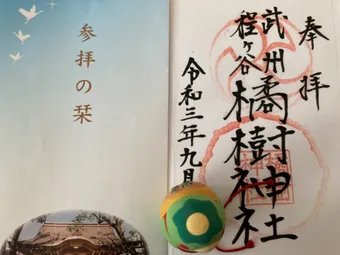 参拝の栞
奉拝
武州
程ヶ谷
橘樹神社
令和三年九月